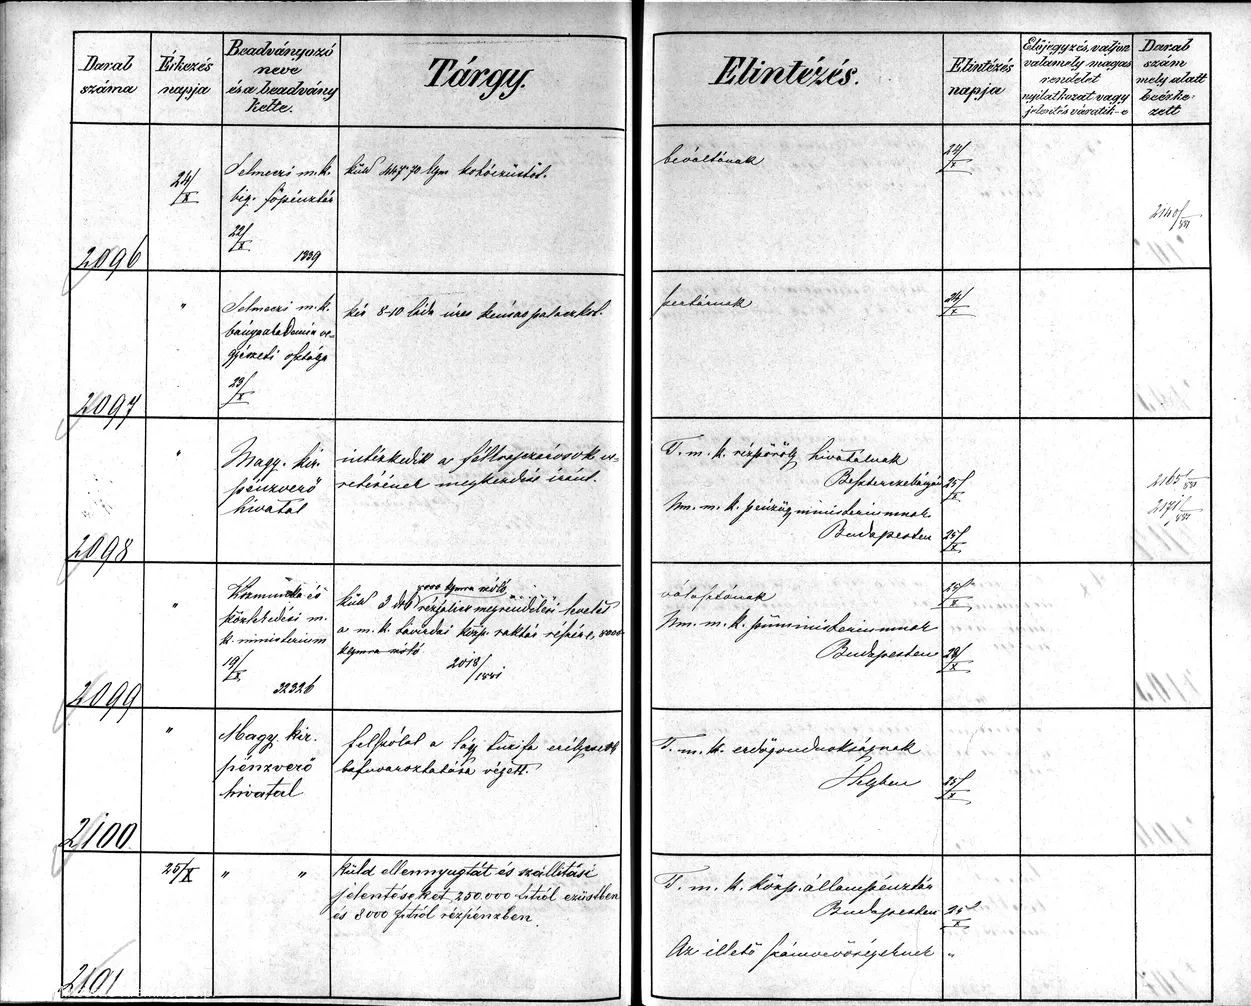 Darab száma
Érkezés napja
Beadványozó neve és a beadvány kelte.
Tárgy.
Elintézés.
Elintézés napja
Előjegyzés, valjon valamely magas rendelet nyilatkozat vagy jelentés váratik-e
Darab szám mely alatt beérkezett
2096
24/X
Selmeczi m. k.
big. főpénztár
22/X
1339
küld
beváltónak
24/X
2140/881
2097
"
Selmeczi m. k.
bányaakadémia ve-
gyészeti osztálya
23/X
kér 8-10 láda üres kénsavpalaczkot.
szertárnak
24/X
2098
"
Magy. kir.
pénzverő
hivatal
intézkedik a féltvegszárosok ve-
retésének megkezdése iránt.
T. m. k. rézpöröly hivatalnak
Beszterczebányán 25/X
Nm. m. k. pénzügyministeriumnak
Budapesten 25/X
2165/881
2171/881
2099
"
Közmunka és
közlekedési m.
k. ministerium
19/X
32326
küld 3 db rézfélék megrendelési levelet
a m. k. távirdai közp. raktár részére,
2018/1881
25/X
Nm. m. k. pümministeriumnak
Budapesten 28/X
2100
"
Magy. kir.
pénzverő
hivatal
felszólal a lágy tűzifa erélyesebb
befuvaroztatása végett.
T. m. k. erdőgondnokságnak
Helyben 25/X
2101
25/X
" "
küld ellennyugtát és szállítási
jelentéseket 250.000 frtról ezüstben
és 8000 frtról rézpénzben
T. m. k. közp. állampénztár
Budapesten 25/X
Az illető számvevőségeknek "